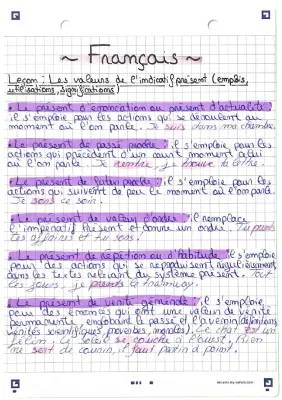 ~ Français ~
Leçon : Les valeurs de l'indicatif présent (emplois,
utilisations, significations)
• Le présent d'énonciation ou présent d'actualité
il s'emploie pour les actions qui se déroulent au
moment où l'on parle. Je suis dans ma chambre.
• Le présent de passé proche : il s'emploie pour les
actions qui précèdent d'un court moment celui
où l'on parle. Je rentre, je trouve la lettre.
• Le présent de futur proche : il s'emploie pour les
actions qui suivent de peu le moment où l'on parle.
Je sors ce soir.
• Le présent de valeur d'ordre : il remplace
l'impératif présent et donne un ordre. Tu prends
tes affaires et tu sors.
• Le présent de répétition ou d'habitude : il s'emploie
pour des actions qui se reproduisent régulièrement
dans les textes relevant du système présent. Tout
les jours, je prends le tramway.
• Le présent de vérité générale : il s'emploie
pour des énoncés qui ont une valeur de vérité
permanente, englobant le passé et l'avenir (définitions,
vérités scientifiques, proverbes, morales). Le chat est un
félin. Le soleil se couche à l'ouest. Rien
ne sert de courir, il faut partir à point.